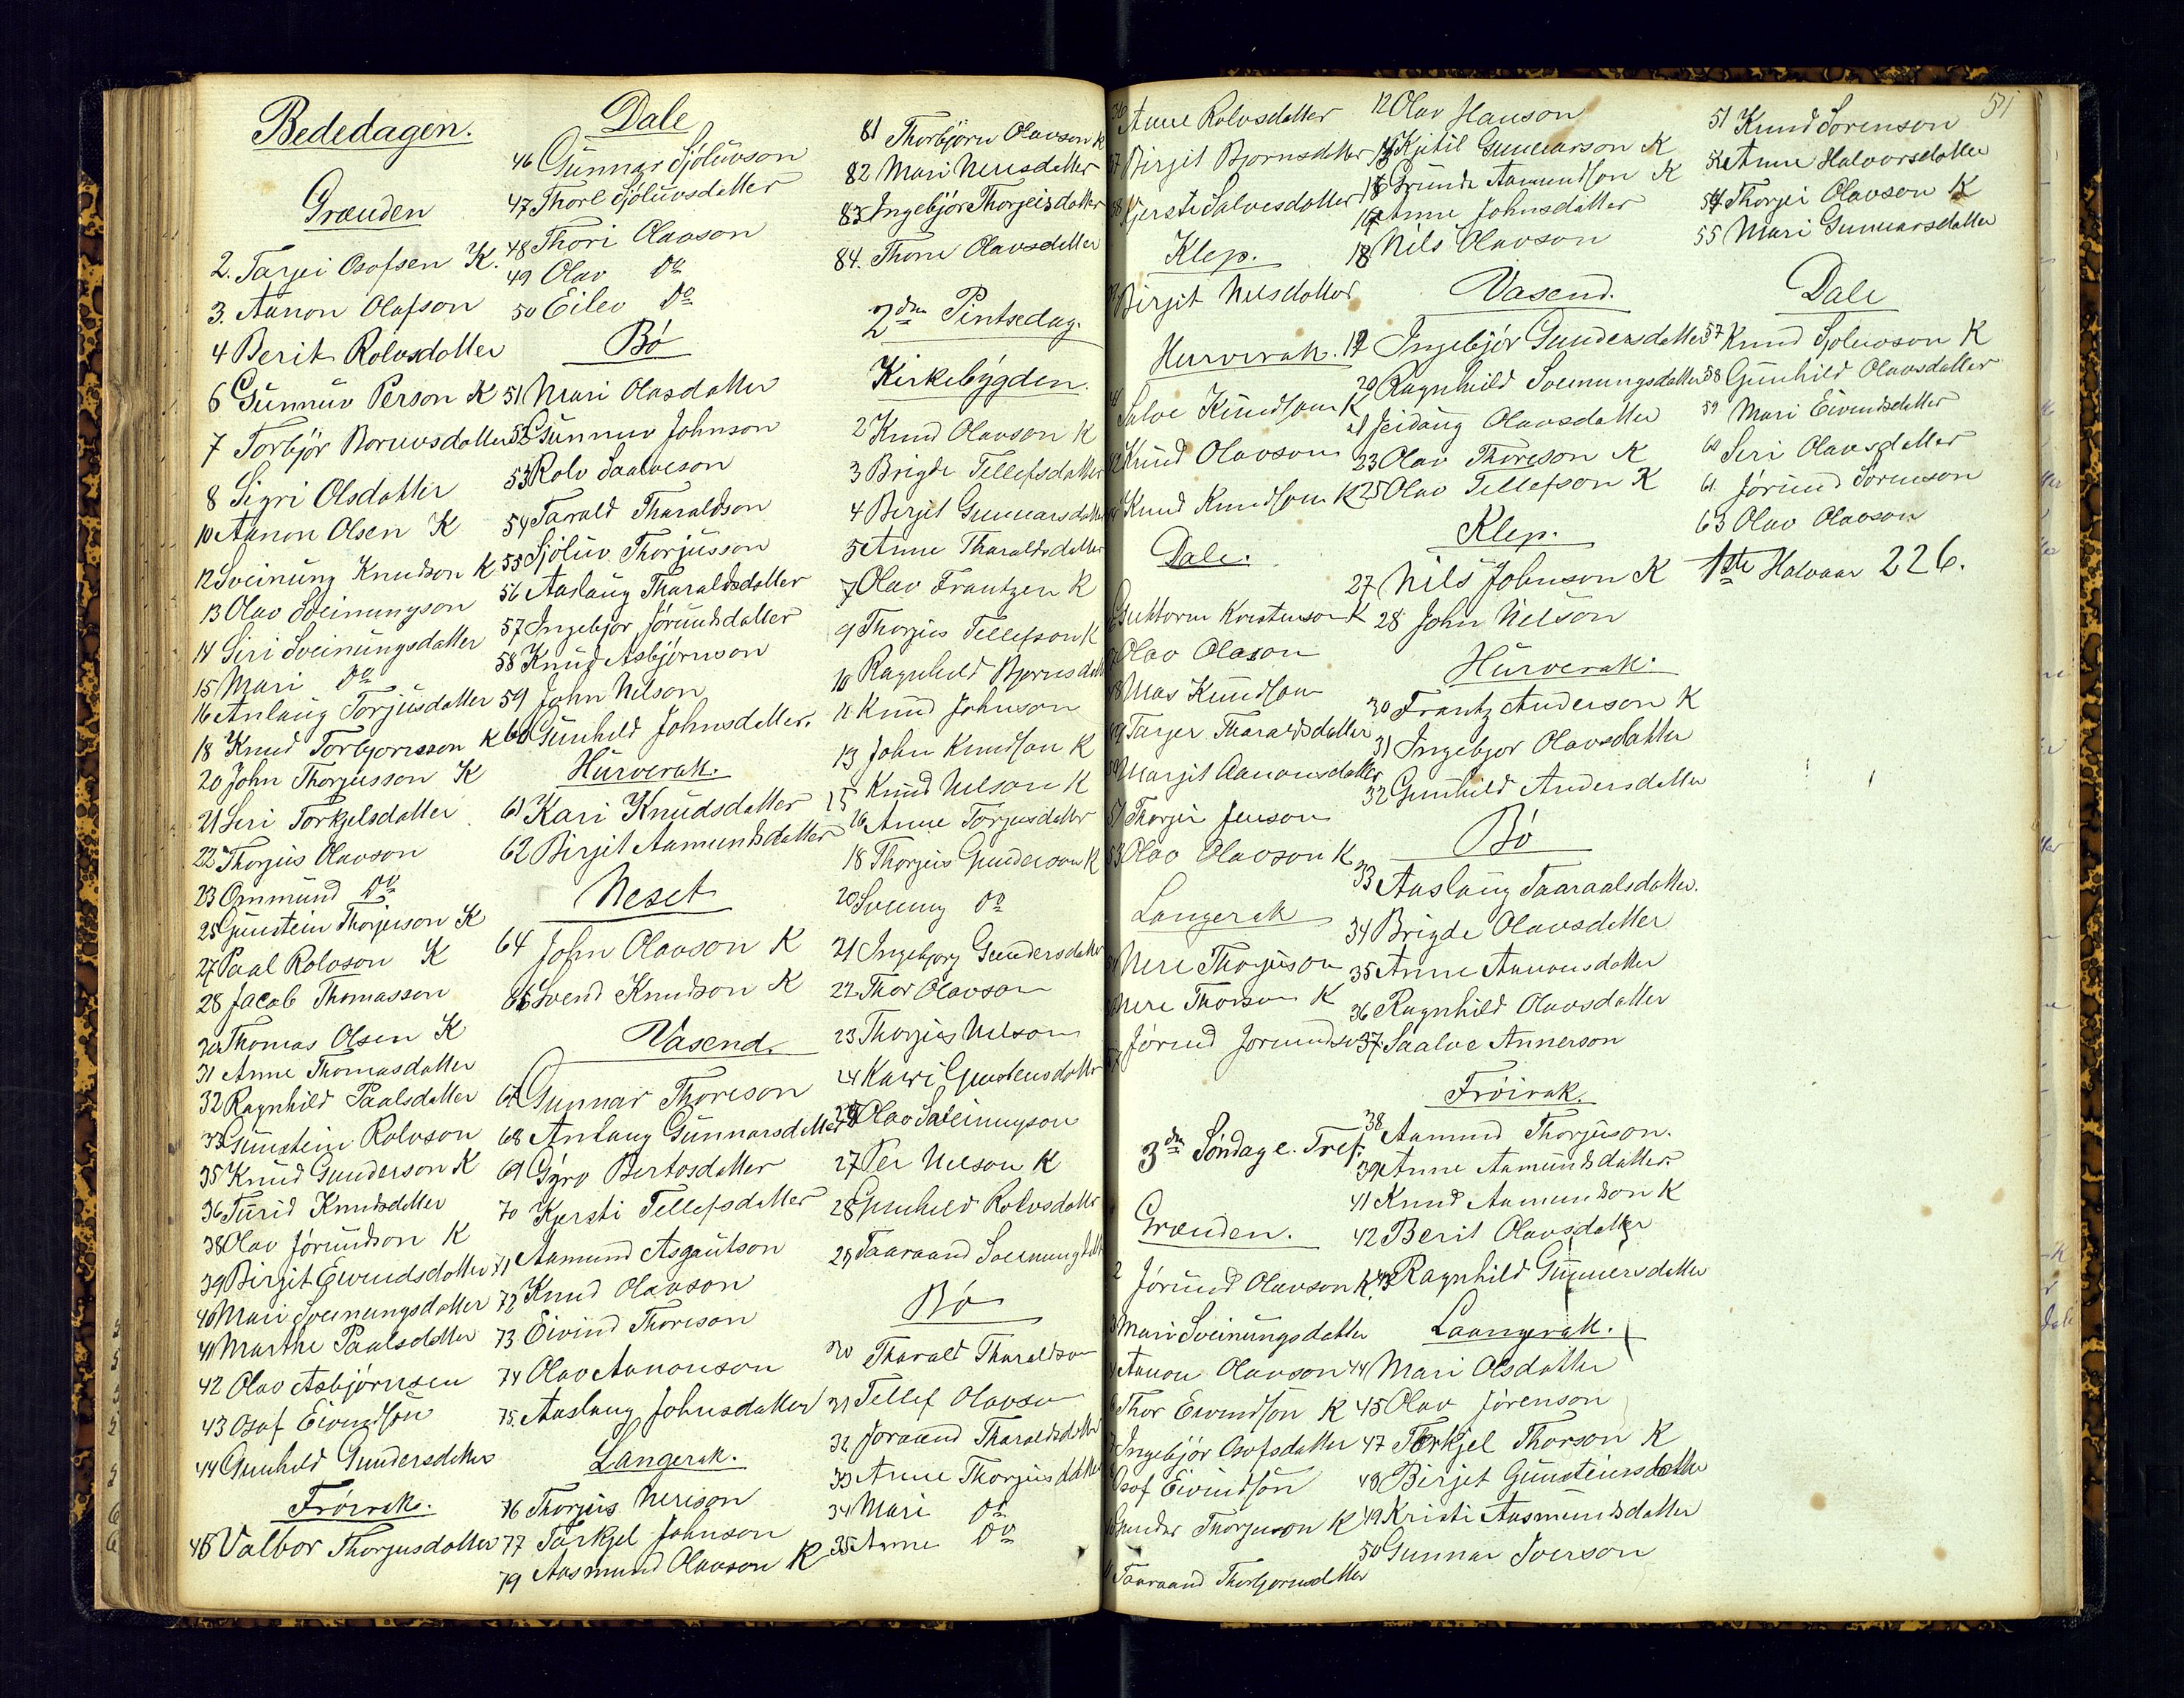 Bededagen.
Grænden
2. Tarjei Osofsen K.
3. Aanon Olafson
4 Berit Rolvsdatter
6 Gunnuv Person K
7 Torbjör Boruvsdatter
8 Sigri Olsdatter
10 Aanon Olsen K
12 Sveinung Knudson K
13 Olav Sveinungson
14 Siri Sveinungsdatter
15 Mari Do
16 Anlaug Torjusdatter
18 Knud Torbjornson K
20 John Thorjusson K
21 Siri Torkjelsdatter
22 Thorjus Olavson
23 Ommund Do
25 Gunstein Thorjuson K
27 Paal Rolvson K
28 Jacob Thomasson
30 Thomas Olsen K
31 Anne Thomasdatter
32 Ragnhild Paalsdatter
33 Gunstein Rolvson
35 Knud Gunderson K
36 Turid Knudsdatter
38 Olav Jörundson K
39 Birgit Eivindsdatter
40 Mari Sveinungsdatter
41 Marthe Paalsdatter
42 Olav Asbjörnsen
43 Osof Eivindson
44 Gunhild Gundersdatter
Fröirak.
45 Valbor Thorjusdatter
Dale
46 Gunnar Sjöluvson
47 Thore Sjöluvsdatter
48 Thori Olavson
49 Olav Do
50 Eilev Do
Bö
51 Mari Olasdatter
52 Gunnuv Johnson
53 Rolv Saalveson
54 Tarald Tharaldson
55 Sjöluv Thorjusson
56 Aaslaug Tharaldsdatter
57 Ingebjor Jörundsdatter
58 Knud Asbjörnson
59 John Nilson
60 Gunhild Johnsdatter.
Hurverak.
61 Kari Knudsdatter
62 Birgit Aamundsdatter
Neset
64 John Olavson K
66 Svend Knudson K
Vasend.
67 Gunnar Thoreson
68 Anlaug Gunnarsdatter
69 Gýro Bertosdatter
70 Kjersti Tellefsdatter
71 Aamund Asgautson
72 Knud Olavson
73 Eivind Thoreson
74 Olav Aanonson
75. Aaslaug Johnsdatter
Langerak.
76 Thorjus Nerison
77 Tarkjel Johnson
79 Aasmund Olavson K
81 Thorbjörn Olavson K
82 Mari Nerisdatter
83 Ingebjör Thorjeisdatter
84. Thore Olavsdatter
2den Pintsedag.
Kirkebýgden.
2 Knud Olavson K
3 Brigde Tellefsdatter
4 Birgit Gunnarsdatter
5 Anne Tharaldsdatter
7 Olav Frantzen K
9 Thorjus Tellefson K
10 Ragnhild Bjornsdatt
11 Knud Johnson
13 John Knudson K
15 Knud Nilson K
16 Anne Torjusdatter
18 Thorjus Gunderson K
20 Sveinung Do
21 Ingebjorg Gundersdatter
22 Thor Olavson
23 Thorjus Nilson
24 Kari Gunsteinsdatter
25 Olav Saleimugson
27 Per Nilson K
28 Gunhild Rolvsdatter
29 Taaraand Sveinungsdatt
Bö
30 Tharald Tharaldson
31 Tellef Olavson
32 Joraand Tharaldsdatter
33 Anne Thorjusdatter
34 Mari Do
35 Anne Do
51
36 Anne Rolvsdatter
37 Birgit Bjornsdatter
38 Kjersti Salvesdatter
Klep.
Birgit Nilsdatter
Hurverak.
Salve Knudson K
42 Knud Olavson
44 Knud Knudson K
Dale.
Guttorm Kristenson K
Olav Olason
48 Mas Knudson
49 Tarjer Tharaldsdatter
50 Margit Aanonsdatter
51 Thorjer Jenson
53 Olav Olavson K
Langerak
Neri Thorjuson
Neri Thorson K
57 Jörund Jorundson
3die Söndag e. Tref.
Grænden.
2 Jörund Olavson K
3 Mari Sveinungsdatter
4 Aanon Olavson
6 Thor Eivindson K
7 Ingebjör Osofsdatter
Osof Eivindson
Gunder Thorjuson K
Taaraand Thorbjornsdatter
12 Olav Hanson
14 Kjetil Gunnarson K
16 Grunde Aamundson K
17 Anne Johnsdatter
18 Nils Olavson
Vasend.
19 Ingebjör Gundersdatter
20 Ragnhild Sveinungsdatter
21 Jeidaug Olavsdatter
23 Olav Thoreson K
25 Olav Tellefson K
Klep.
27 Nils Johnson K
28 John Nilson
Hurverak.
30 Frantz Anderson K
31 Ingebjor Olavsdatter
32 Gunhild Andersdatter
Bö
33 Aaslaug Taaraalsdatter.
34 Brigde Olavsdatter
35 Anne Aanonsdatter
36 Ragnhild Olavsdatter
37 Saalve Annerson
Fröirak.
38 Aamund Thorjuson.
39 Anne Aamundsdatter.
41 Knud Aamundson K
42 Berit Olavsdatter
43 Ragnhild Gunnersdatter
Laangerak.
44 Mari Olsdatter
45 Olav Jörenson
47 Torkjel Thorson K
48 Birgit Gunsteinsdatter
49 Kristi Aasmundsdatter
50 Gunnar Iverson
51 Knud Sörenson
52 Anne Halvorsdatter
54 Thorjei Olavson K
55 Mari Gunnarsdatter
Dale
57 Knud Sjoluvson K
58 Gunhild Olavsdatter
59 Mari Eivindsdatter
60 Siri Olavsdatter
61. Jörund Sörenson
63 Olav Olavson
1ste Halvaar 226.